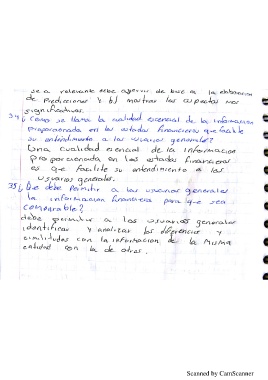 sea relevante debe servir de base a la elaboracion
de predicciones y b) mostrar los aspectos mas
significativos.
34¿Como se llama la cualidad esencial de la informacion
proporcionada en los estados financieros que facilite
su entendimiento a los usuarios generales?
Una cualidad esencial de la informacion
proporcionada en los estados financieros
es que facilite su entendimiento a los
usuarios generales.
35¿Que debe permitir a los usuarios generales
la informacion financiera para que sea
comparable?
debe permitir a los usuarios generales
identificar y analizar las diferencias y
similitudes con la informacion de la misma
entidad con la de otras.
Scanned by CamScanner